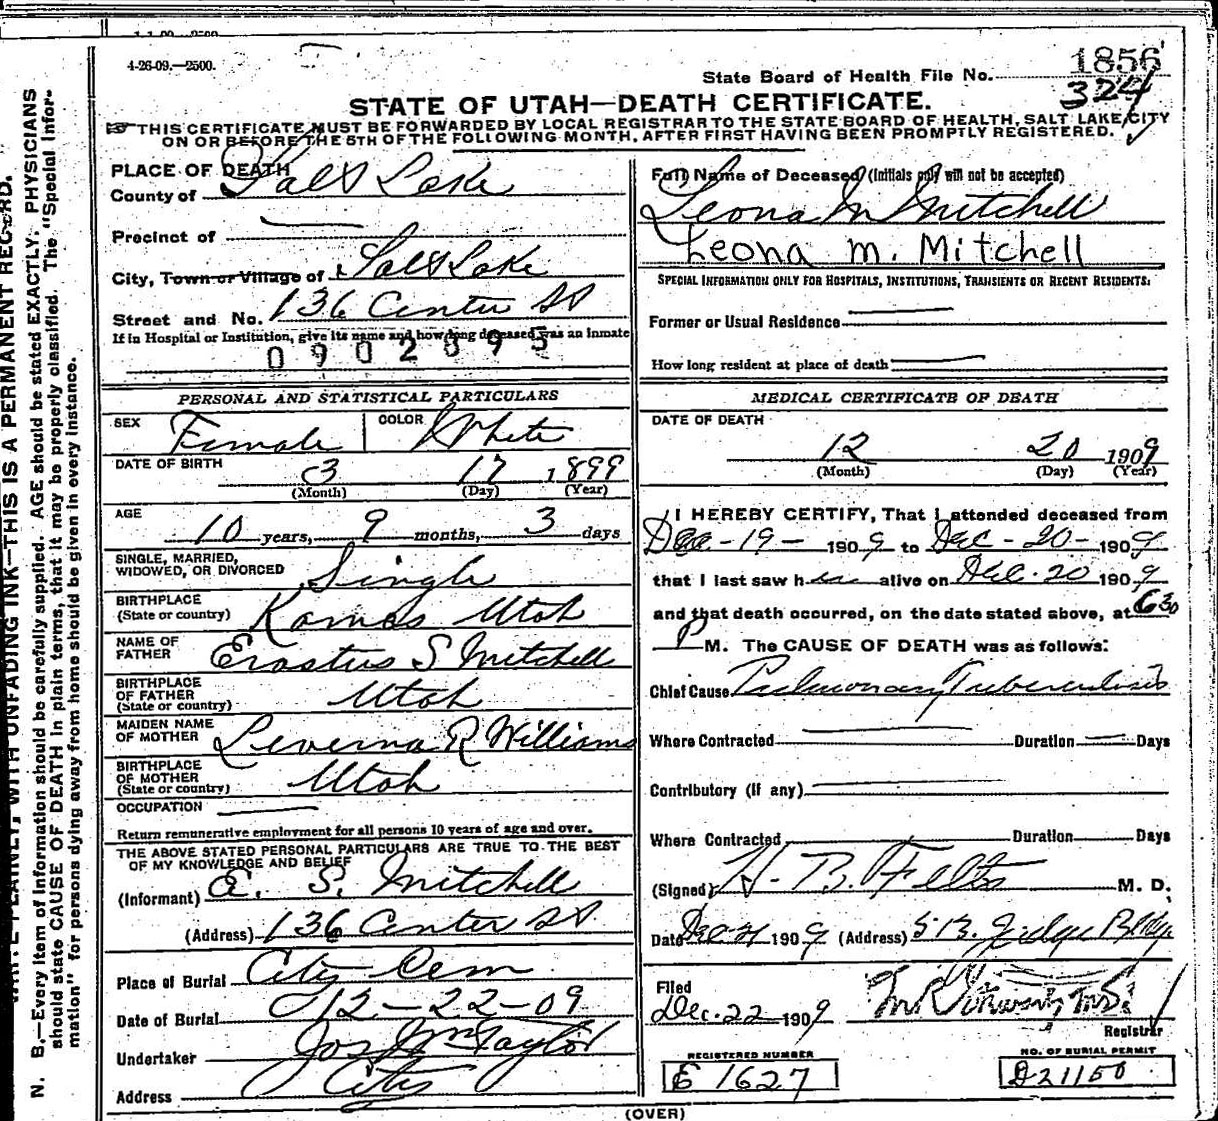 4-26-09.—2500.
1856
State Board of Health File No.
324
STATE OF UTAH—DEATH CERTIFICATE.
THIS CERTIFICATE MUST BE FORWARDED BY LOCAL REGISTRAR TO THE STATE BOARD OF HEALTH, SALT LAKE CITY
ON OR BEFORE THE 5TH OF THE FOLLOWING MONTH, AFTER FIRST HAVING BEEN PROMPTLY REGISTERED.
PLACE OF DEATH
County of Salt Lake
Precinct of
City, Town or Village of Salt Lake
Street and No. 136 Center St
If in Hospital or Institution, give its name and how long deceased was an inmate
0902895
PERSONAL AND STATISTICAL PARTICULARS
SEX Female COLOR White
DATE OF BIRTH 3 17 1899
(Month) (Day) (Year)
AGE 10 years, 9 months, 3 days
SINGLE, MARRIED,
WIDOWED, OR DIVORCED Single
BIRTHPLACE
(State or country) Kamas Utah
NAME OF
FATHER Erastus S Mitchell
BIRTHPLACE
OF FATHER
(State or country) Utah
MAIDEN NAME
OF MOTHER Leverna R Williams
BIRTHPLACE
OF MOTHER
(State or country) Utah
OCCUPATION
Return remunerative employment for all persons 10 years of age and over.
THE ABOVE STATED PERSONAL PARTICULARS ARE TRUE TO THE BEST
OF MY KNOWLEDGE AND BELIEF
(Informant) E. S. Mitchell
(Address) 136 Center St
Place of Burial City Cem
Date of Burial 12-22-09
Undertaker Jos Wm Taylor
Address City
Full Name of Deceased (Initials only will not be accepted)
Leona M Mitchell
Leona M. Mitchell
SPECIAL INFORMATION ONLY FOR HOSPITALS, INSTITUTIONS, TRANSIENTS OR RECENT RESIDENTS.
Former or Usual Residence
How long resident at place of death
MEDICAL CERTIFICATE OF DEATH
DATE OF DEATH
12 20 1909
(Month) (Day) (Year)
I HEREBY CERTIFY, That I attended deceased from
Dec-19- 1909 to Dec-20- 1909
that I last saw her alive on Dec. 20 1909
and that death occurred, on the date stated above, at 6 30
P M. The CAUSE OF DEATH was as follows:
Chief Cause Pulmonary Tuberculosis
Where Contracted Duration Days
Contributory (if any)
Where Contracted Duration Days
(Signed) H. B. Felts M. D.
Date Dec 21 1909 (Address) 513 Judge Bldg
Filed
Dec. 22 1909
Registrar
REGISTERED NUMBER
E 1627
NO. OF BURIAL PERMIT
D21150
(OVER)
N. B.—Every item of information should be carefully supplied. AGE should be stated EXACTLY. PHYSICIANS
should state CAUSE OF DEATH in plain terms, that it may be properly classified. The "Special Infor-
mation" for persons dying away from home should be given in every instance.
PLAINLY, WITH UNFADING INK—THIS IS A PERMANENT RECORD.